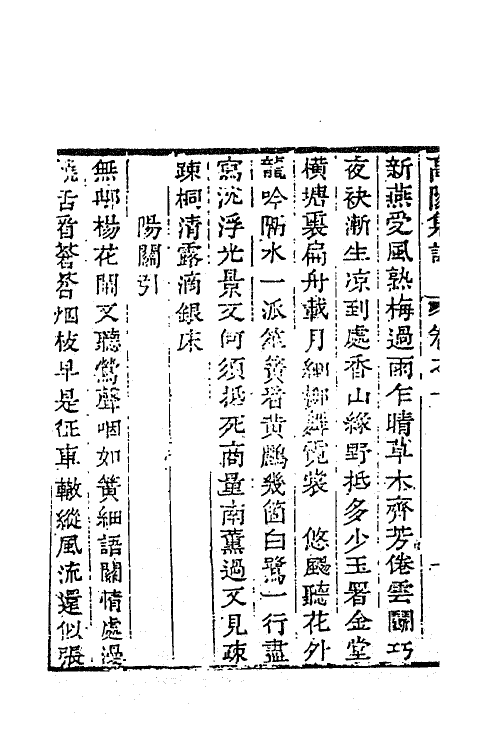 高陽集詩 卷之一 一
新燕受風熟梅過雨乍晴草木齊芳倦雲鬬巧
夜袂漸生凉到處香山綠野抵多少玉署金堂
橫塘裏扁舟載月細柳舞霓裳 悠颺聽花外
龍吟隔水一派笙簧看黃鸝幾箇白鷺一行盡
寫沈浮光景又何須抵死商量南薰過又見疎
疎桐清露滴銀床
陽關引
無那楊花鬧又聽鶯聲咽如簧細語關情處漫
饒舌看蒼蒼烟枝早是征車轍縱風流還似張